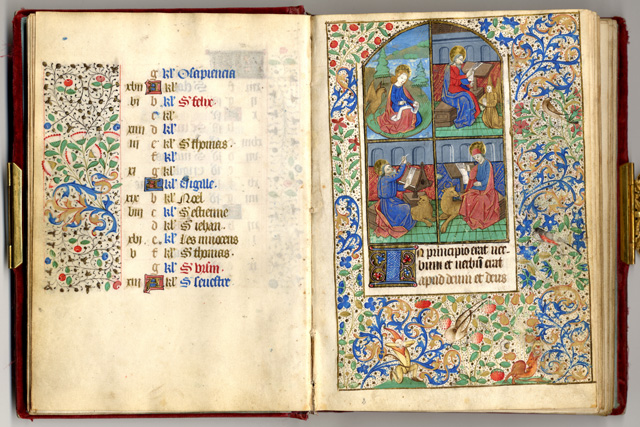 g kl' O sapiencia
xviii A kl'
vi b kl' S' felix
c kl'
xiiii d kl'
iii e kl' S' thomas.
f kl'
xi g kl'
A kl' Vigille
xix b kl' Noel
viii c kl' S' estienne
d kl' S' iehan
xvi e kl' Les innocens
v f kl' S' thomas.
g kl' S' ursin.
xiii A kl' S' seuestre
In principio erat uer-
bum et uerbū erat
apud deum et deus